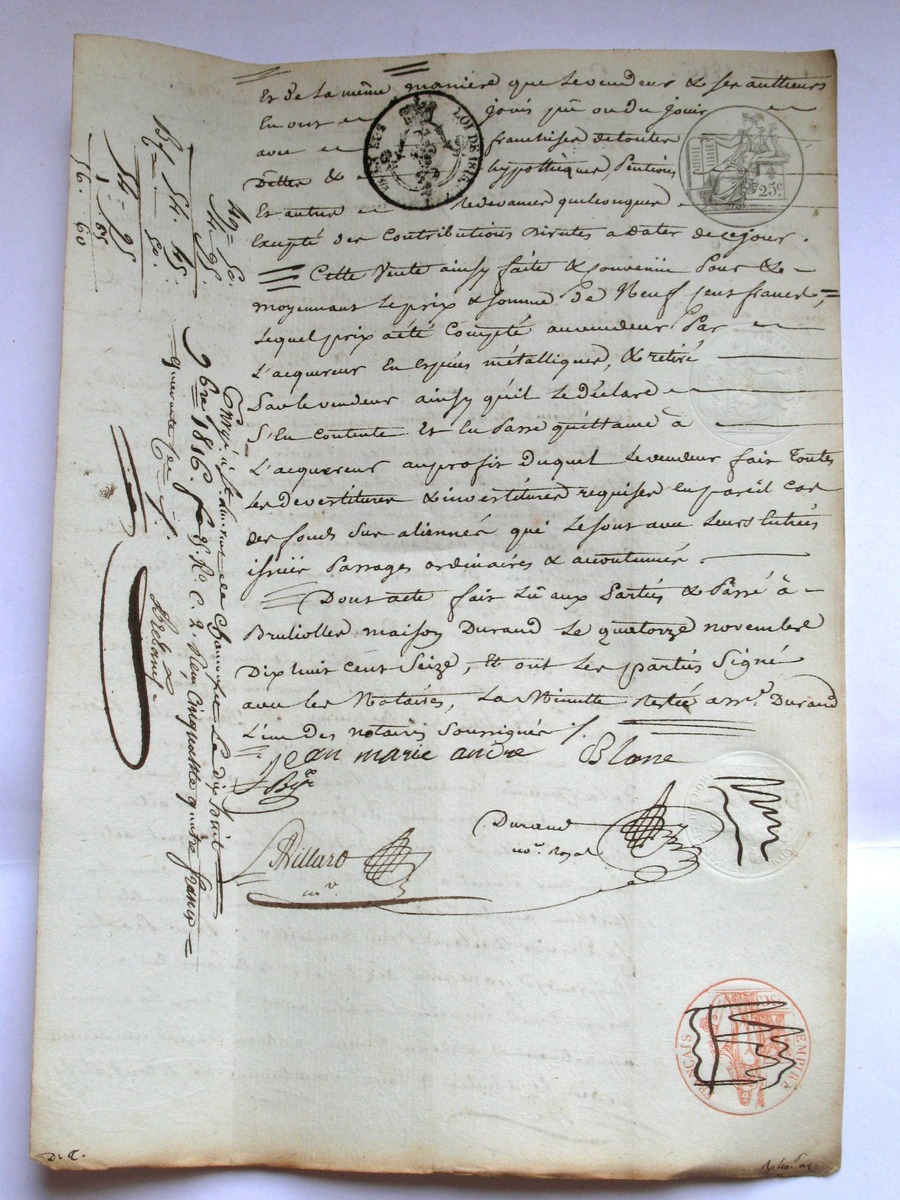 Et de la même manière que le vendeur & ses autheurs
En ont jouis pû ou du jouir
avec franchises de toutes
Dettes & hypothèques, Pentions
Et autres Redevances quelconques
Excepté des Contributions Directes a Dater de ce jour.
Cette Vente ainsy faite & convenüe Pour &
moyennant Le prix & somme De Neuf cent francs,
Lequel prix a été Compté au vendeur Par
L'acquereur En Espèces métalliques, & retiré
Par le vendeur ainsy qu'il Le Déclare
S'En Contente Et En Passe quittance à
L'acquereur au profit Duquel Le vendeur fait Toutes
Les Devestitures & investitures requises En pareil cas
des fonds sus alienneés qui Le sont avec Leurs Entrées
issuës Passages ordinaires & acoutumés.
Dont acte fait Lû aux Parties & Passé à
Brullioles maison Durand Le quatorze novembre
Dix huit cent Seize, Et ont Les parties Signé
avec les Notaires, La Minutte Restée a Mr. Durand
L'un des notaires Soussignés
jean marie andre Blanc
Durand
nore. Royal
Billard
LOI DE 1816
25c
EMPIRE FRANÇAIS
Engé. à St. Laurent de Chamousset Le dix huit
9bre 1816. fo. 95 Ro. C. 2. Reçu Cinquante quatre francs
quarante cinq c.
54. 45.
54. 95
1. 65
56. 60